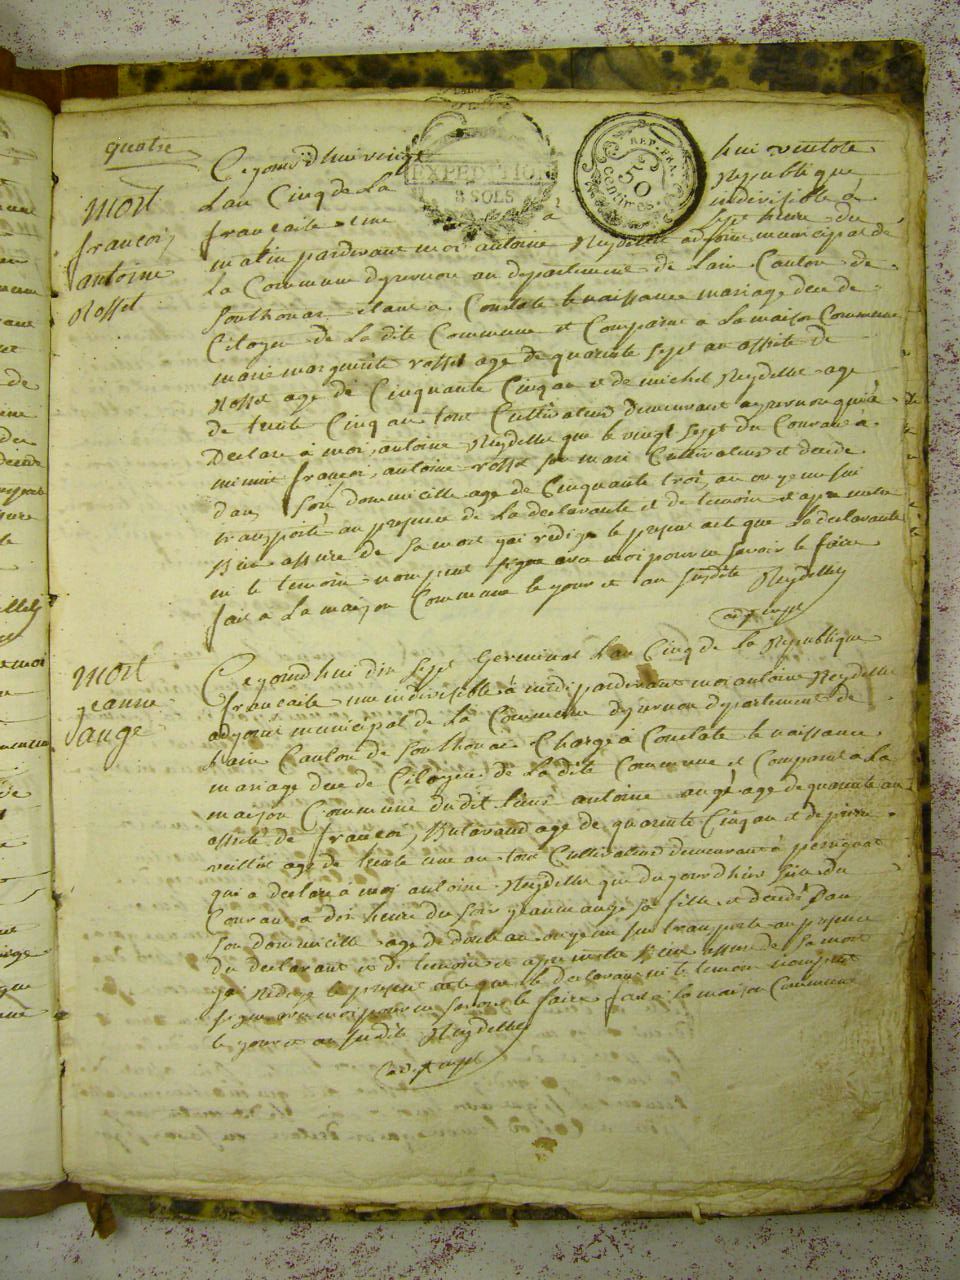 quatre
mort
françois
antoine
Rosset
Ce jourd'hui vingt huit ventose
EXPEDITION
8 SOLS
REP. FRA.
50
centimes
Lan Cinq de La Republique
francaise une indivisible à sept heure du
matin pardevant moi antoine Reydellet adjoint municipal de
La Commune dizernon au departement de Lain Canton de
Sonthonax elant a Constate le naissance mariage dece de
Citoyen de La dite Commune et Comparut a La maison Commune
marie marguerite rosset age de quarante sept an assiste de
Rosset age de Cinquante Cinq an et de michel Reydellet age
de trente Cinq an tout Cultivateur demeurant a yzernon qui a
Declare à moi antoine Reydellet que le vingt sept du Courant à
minuit françoi antoine rosset son mari Cultivateur et decede
dans son dommicille age de Cinquante troi an ou je me sui
transporté au presence de La declarante et de temoin et apre metre
Bien assure de sa mort jai redige le present acte que La declarante
ni le temoin nom peut signe avec moi pour ne savoir le faire
fait a La maison Commune le jour et an susdite Reydellet
adj mupl
mort
jeanne
ange
Ce jourdhui dix sept Germinal Lan Cinq de La Republique
francaite une indivisible à midi pardevant moi antoine Reydellet
adjoint municipal de La Commune dyzernon departement de
Lain Canton de Sonthonax Charge à Constate le naissance
mariage dece de Citoyen de La dite Commune et Comparut a La
maison Commune dudit Lieu antoine ange age de quarante an
assiste de françoi Butavand age de quarante Cinq an et de pierre
veillet age de trente une an tout Cultivateur demeurant à
qui a declare a moi antoine Reydellet que du jourdhier seize du
Courant a dix heure du soir jeanne ange sa fille et decede Dan
son dommicille age de douze an ou je me sui transporte au presence
du declarant et de temoin et apre metre Bien assure de Sa mort
jai redige le present acte que le declarant ni le temoin nom peut
signe avec moi pour ne savoir le faire fait a La maison Commune
le jour et an susdite Reydellet
adj mupl